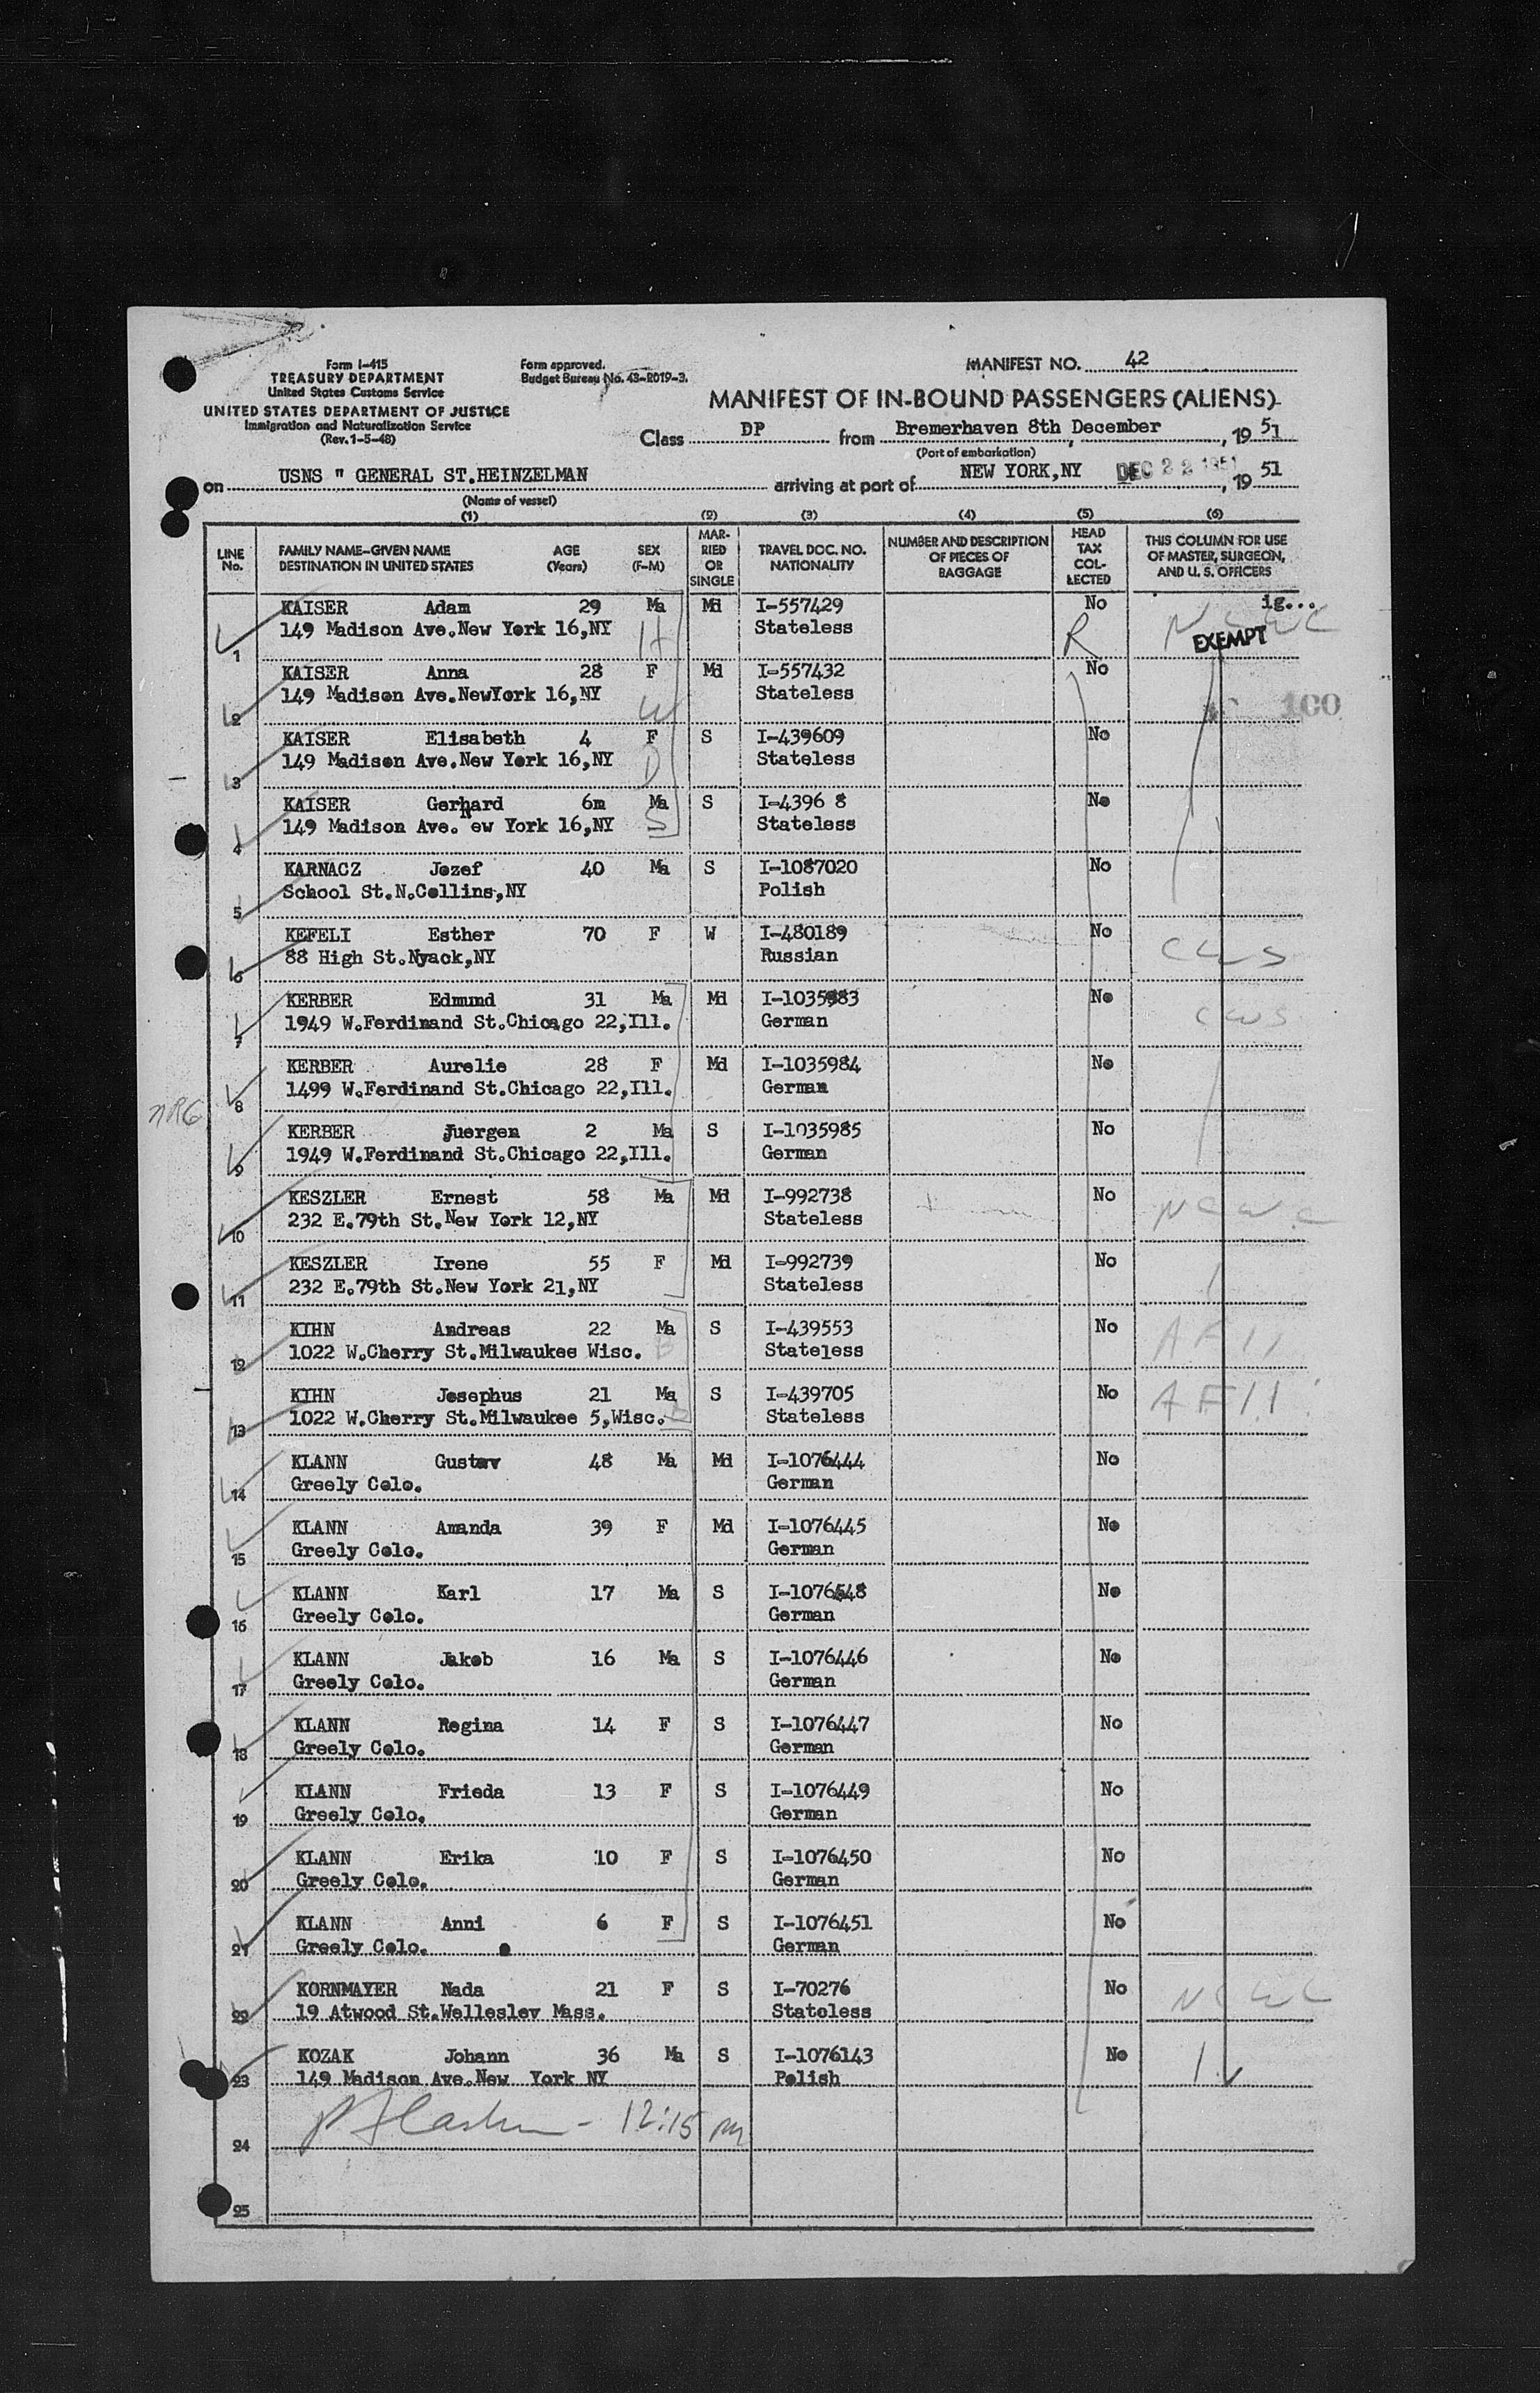 Form I-415
TREASURY DEPARTMENT
United States Customs Service
UNITED STATES DEPARTMENT OF JUSTICE
Immigration and Naturalization Service
(Rev. 1-5-48)
Form approved.
Budget Bureau No. 43-R019-3.
MANIFEST NO. 42
MANIFEST OF IN-BOUND PASSENGERS (ALIENS)
Class DP from Bremerhaven 8th December, 1951
(Port of embarkation)
on USNS " GENERAL ST.HEINZELMAN arriving at port of NEW YORK,NY DEC 22 1951, 1951
(Name of vessel)
(1) (2) (3) (4) (5) (6)
LINE No. FAMILY NAME-GIVEN NAME DESTINATION IN UNITED STATES AGE (Years) SEX (F-M) MARRIED OR SINGLE TRAVEL DOC. NO. NATIONALITY NUMBER AND DESCRIPTION OF PIECES OF BAGGAGE HEAD TAX COLLECTED THIS COLUMN FOR USE OF MASTER, SURGEON, AND U. S. OFFICERS
KAISER Adam 29 Ma Md I-557429 No ig...
1 149 Madison Ave.New York 16,NY H Stateless R NCWC EXEMPT
KAISER Anna 28 F Md I-557432 No
2 149 Madison Ave.NewYork 16,NY W Stateless 100
KAISER Elisabeth 4 F S I-439609 No
3 149 Madison Ave.New York 16,NY D Stateless
KAISER Gerhard 6m Ma S I-4396 8 No
4 149 Madison Ave. ew York 16,NY S Stateless
KARNACZ Jozef 40 Ma S I-1087020 No
5 School St.N.Collins,NY Polish
KEFELI Esther 70 F W I-480189 No
6 88 High St.Nyack,NY Russian CWS
KERBER Edmund 31 Ma Md I-1035983 No
7 1949 W.Ferdinand St.Chicago 22,Ill. German CWS
KERBER Aurelie 28 F Md I-1035984 No
8 1499 W.Ferdinand St.Chicago 22,Ill. German
KERBER Juergen 2 Ma S I-1035985 No
9 1949 W.Ferdinand St.Chicago 22,Ill. German
KESZLER Ernest 58 Ma Md I-992738 No
10 232 E.79th St.New York 12,NY Stateless NCWC
KESZLER Irene 55 F Md I-992739 No
11 232 E.79th St.New York 21,NY Stateless
KIHN Andreas 22 Ma S I-439553 No
12 1022 W.Cherry St.Milwaukee Wisc. B Stateless
KIHN Josephus 21 Ma S I-439705 No
13 1022 W.Cherry St.Milwaukee 5,Wisc. B Stateless
KLANN Gustav 48 Ma Md I-1076444 No
14 Greely Colo. German
KLANN Amanda 39 F Md I-1076445 No
15 Greely Colo. German
KLANN Karl 17 Ma S No
16 Greely Colo. German
KLANN Jakob 16 Ma S I-1076446 No
17 Greely Colo. German
KLANN Regina 14 F S I-1076447 No
18 Greely Colo. German
KLANN Frieda 13 F S I-1076449 No
19 Greely Colo. German
KLANN Erika 10 F S I-1076450 No
20 Greely Colo. German
KLANN Anni 6 F S I-1076451 No
21 Greely Colo. German
KORNMAYER Nada 21 F S I-70276 No
22 19 Atwood St.Wellesley Mass. Stateless NCWC
KOZAK Johann 36 Ma S I-1076143 No
23 149 Madison Ave.New York NY Polish
24 12:15 pm
25